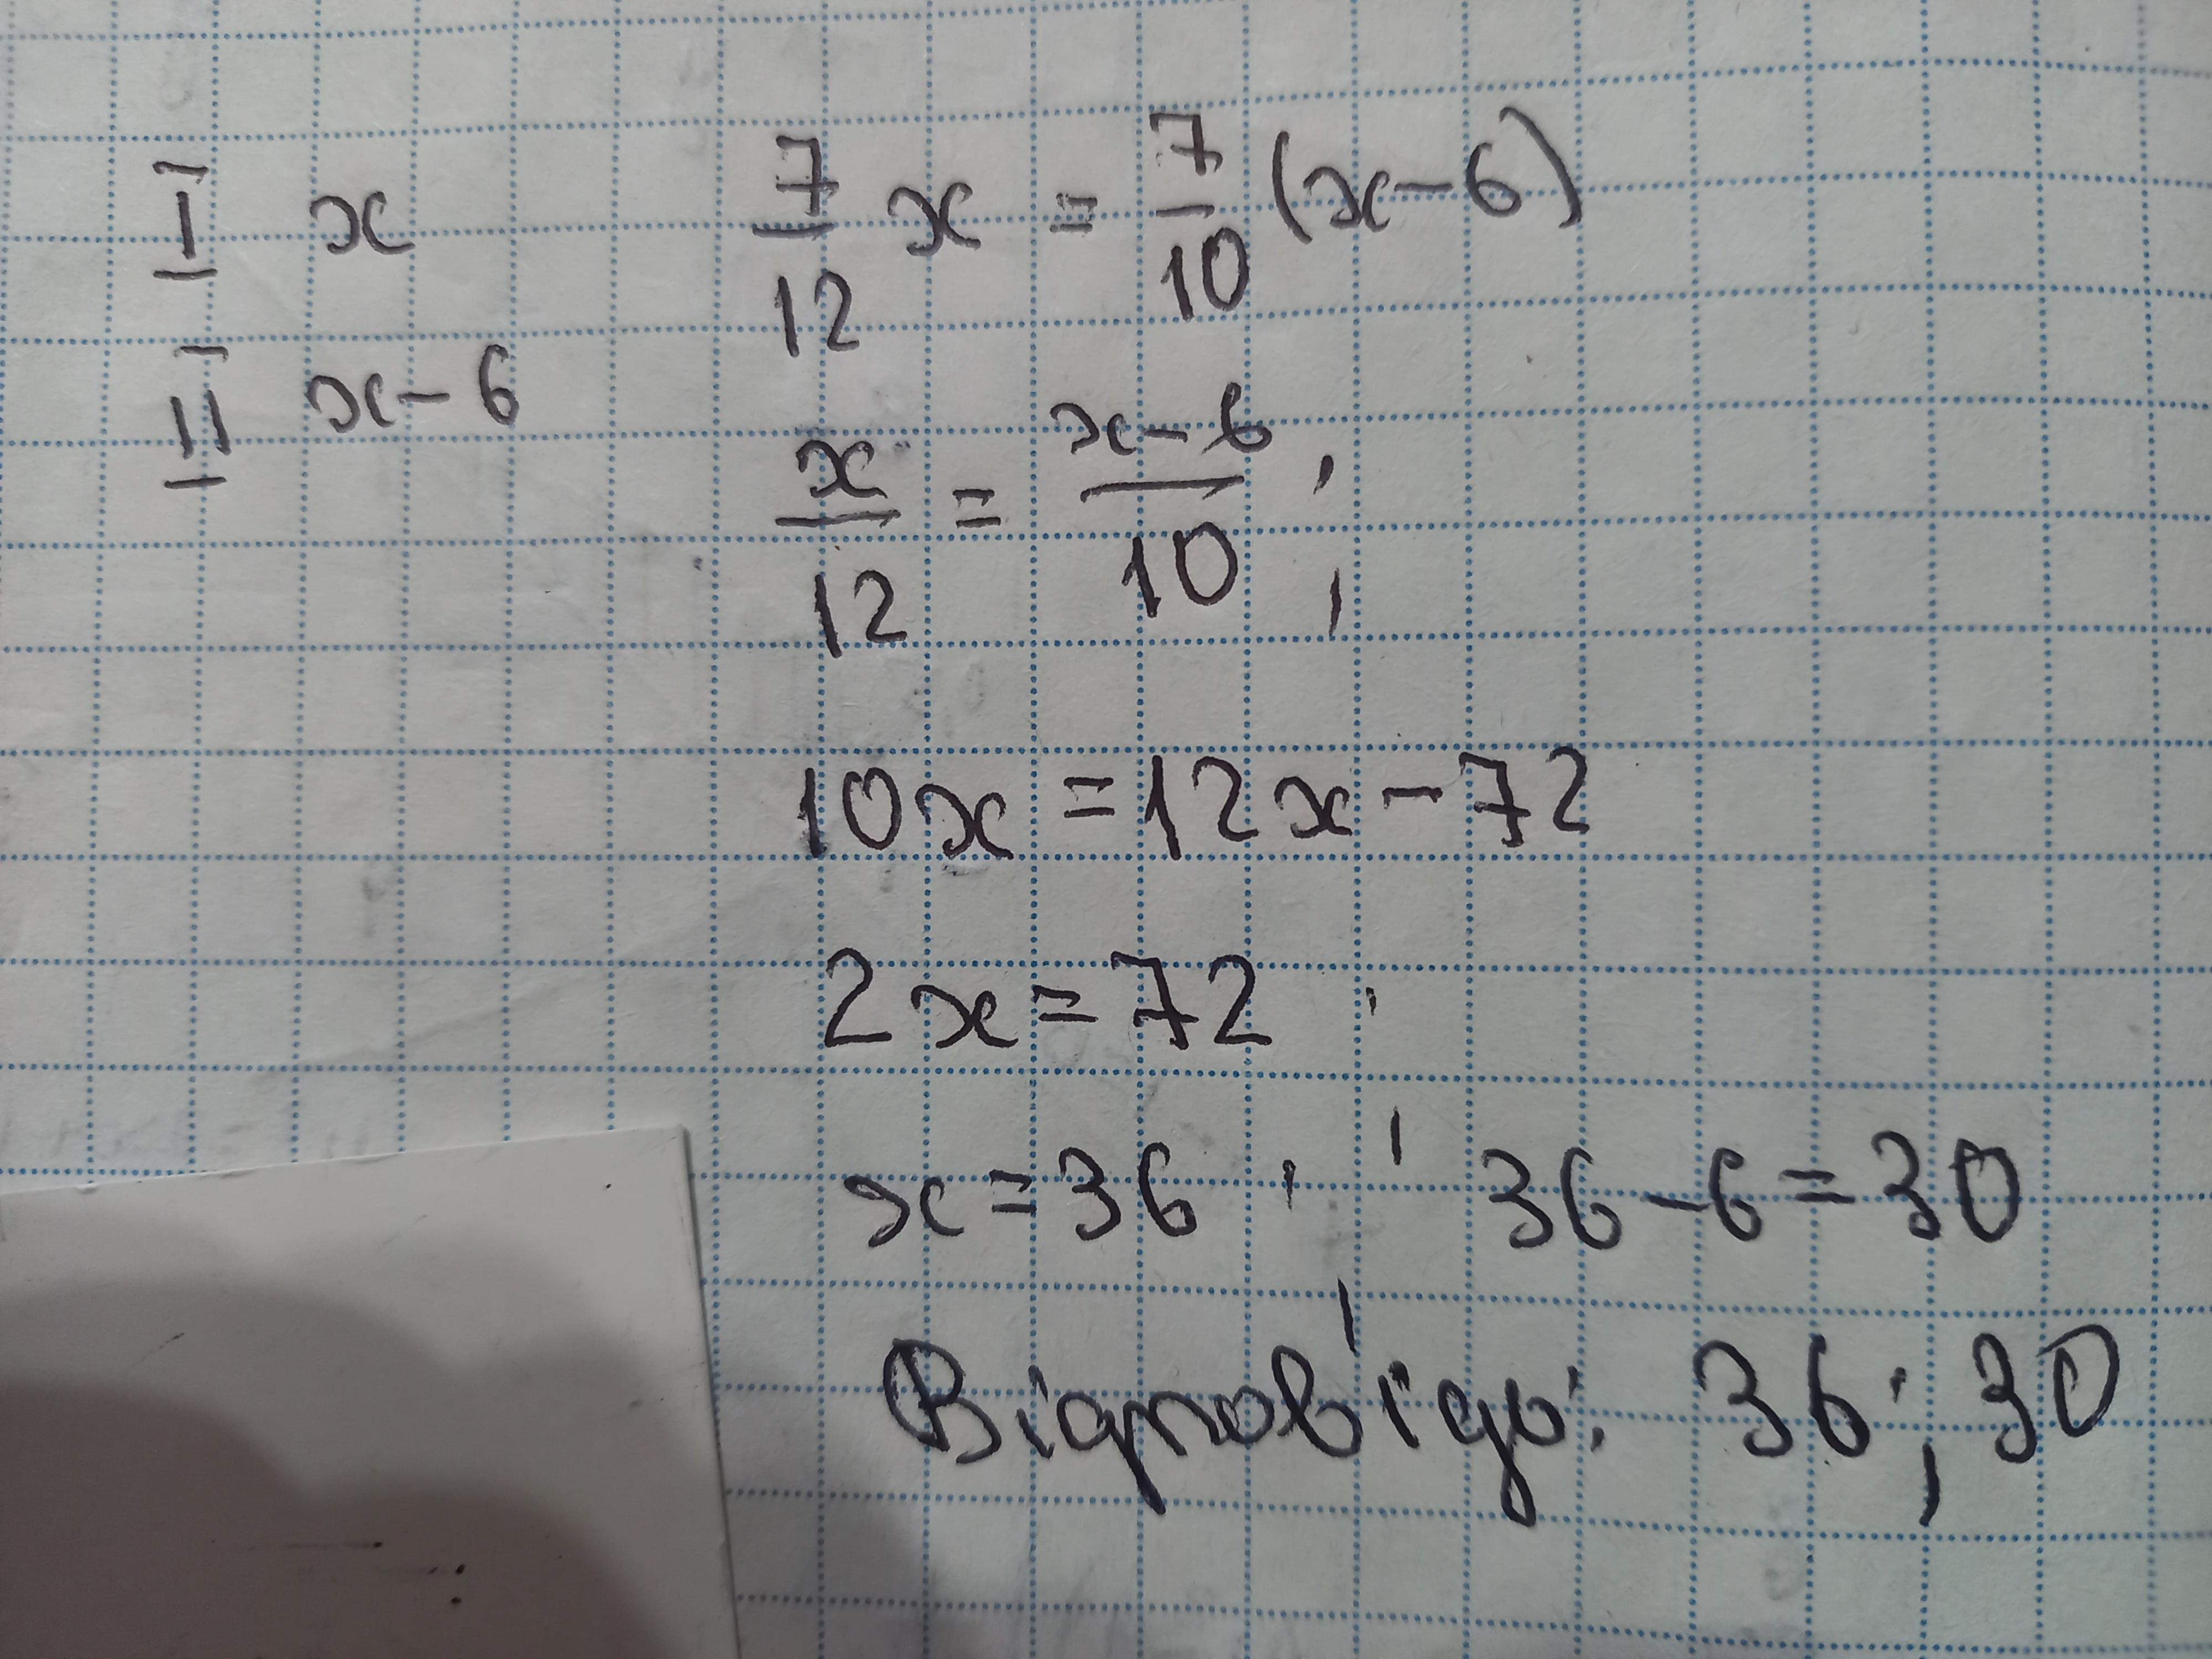 I x
II x-6
7/12 x = 7/10 (x-6)
x/12 = x-6/10 ;
10x = 12x - 72
2x = 72
x = 36 ; 36 - 6 = 30
Відповідь: 36; 30